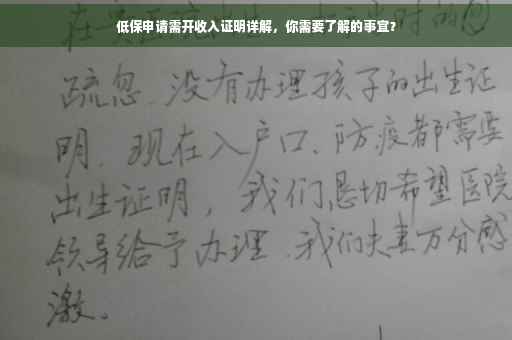 低保申请需开收入证明详解，你需要了解的事宜？
疏忽、没有办理孩子的出生证
明、现在入户口、防疫都需要
出生证明，我们恳切希望医院
领导给予办理、我们夫妻万分感
激。